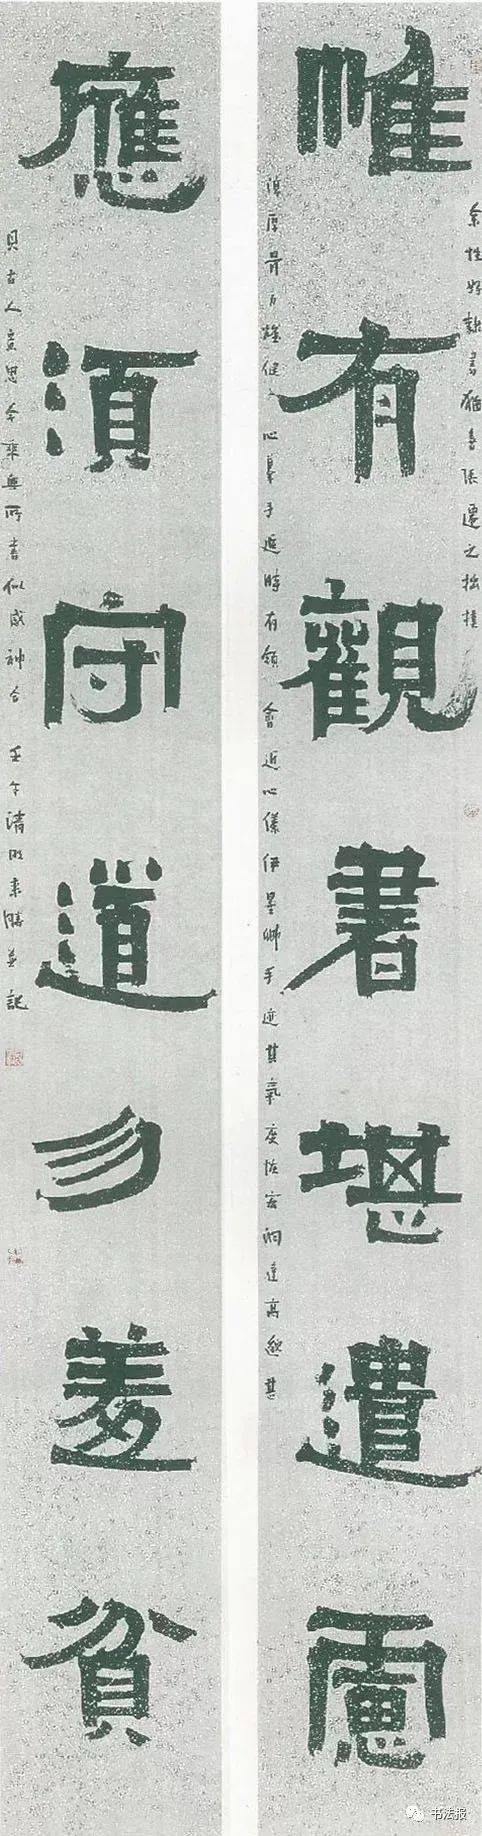 惟有觀書堪遣慮
余性好隸書猶喜張遷之拙樸
厚骨力雄健 心摹手追時有領會近心儀伊墨卿手迹其氣度恢宏洞達高逸甚
應須守道勿羞貧
具古人意思今乘興所書似感神合 壬午清明来勝并記
书法报